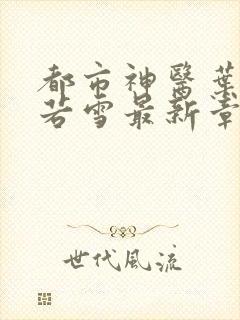 都市神醫葉
若雪最新章
世代風流